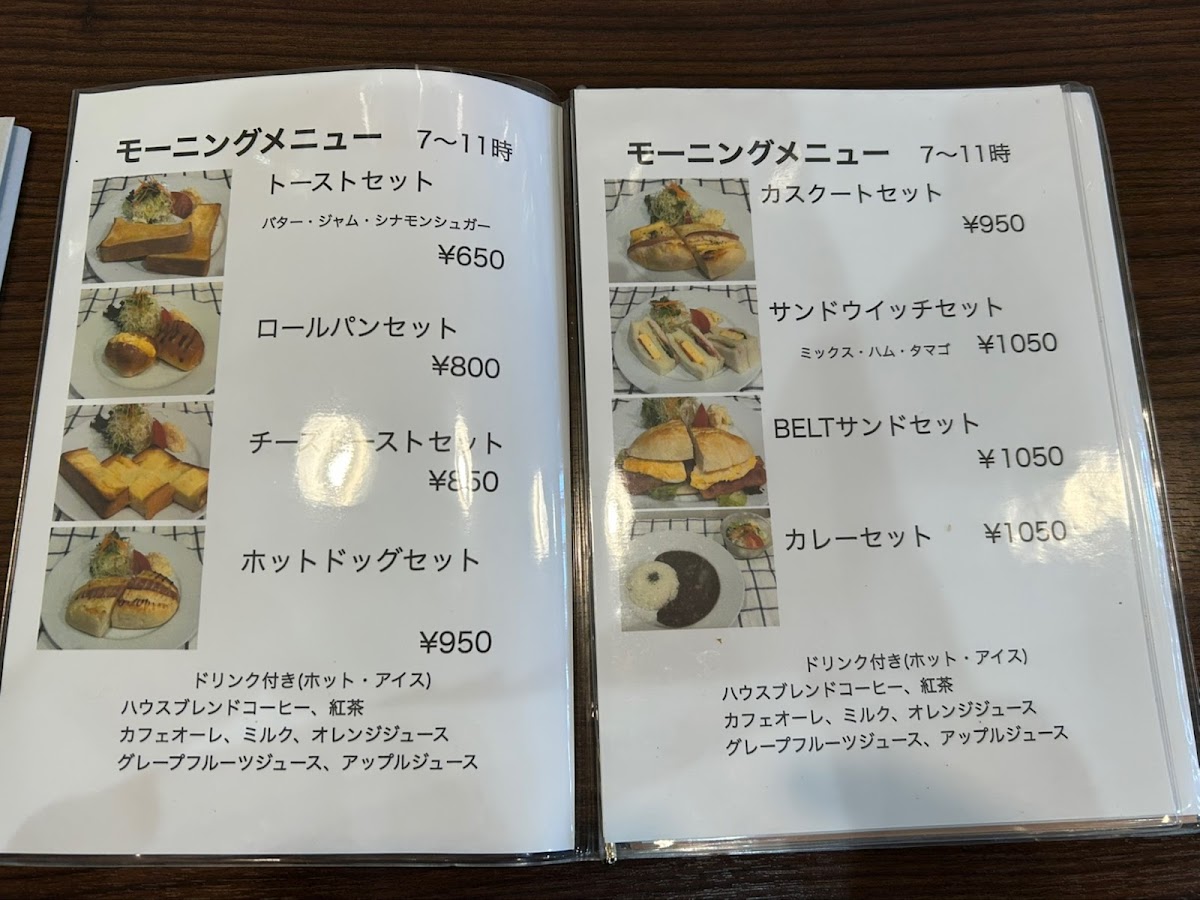 モーニングメニュー 7〜11時
トーストセット
バター・ジャム・シナモンシュガー
¥650
ロールパンセット
¥800
チーズトーストセット
¥850
ホットドッグセット
¥950
ドリンク付き(ホット・アイス)
ハウスブレンドコーヒー、紅茶
カフェオーレ、ミルク、オレンジジュース
グレープフルーツジュース、アップルジュース
モーニングメニュー 7〜11時
カスクートセット
¥950
サンドウイッチセット
ミックス・ハム・タマゴ ¥1050
BELTサンドセット
¥1050
カレーセット ¥1050
ドリンク付き(ホット・アイス)
ハウスブレンドコーヒー、紅茶
カフェオーレ、ミルク、オレンジジュース
グレープフルーツジュース、アップルジュース